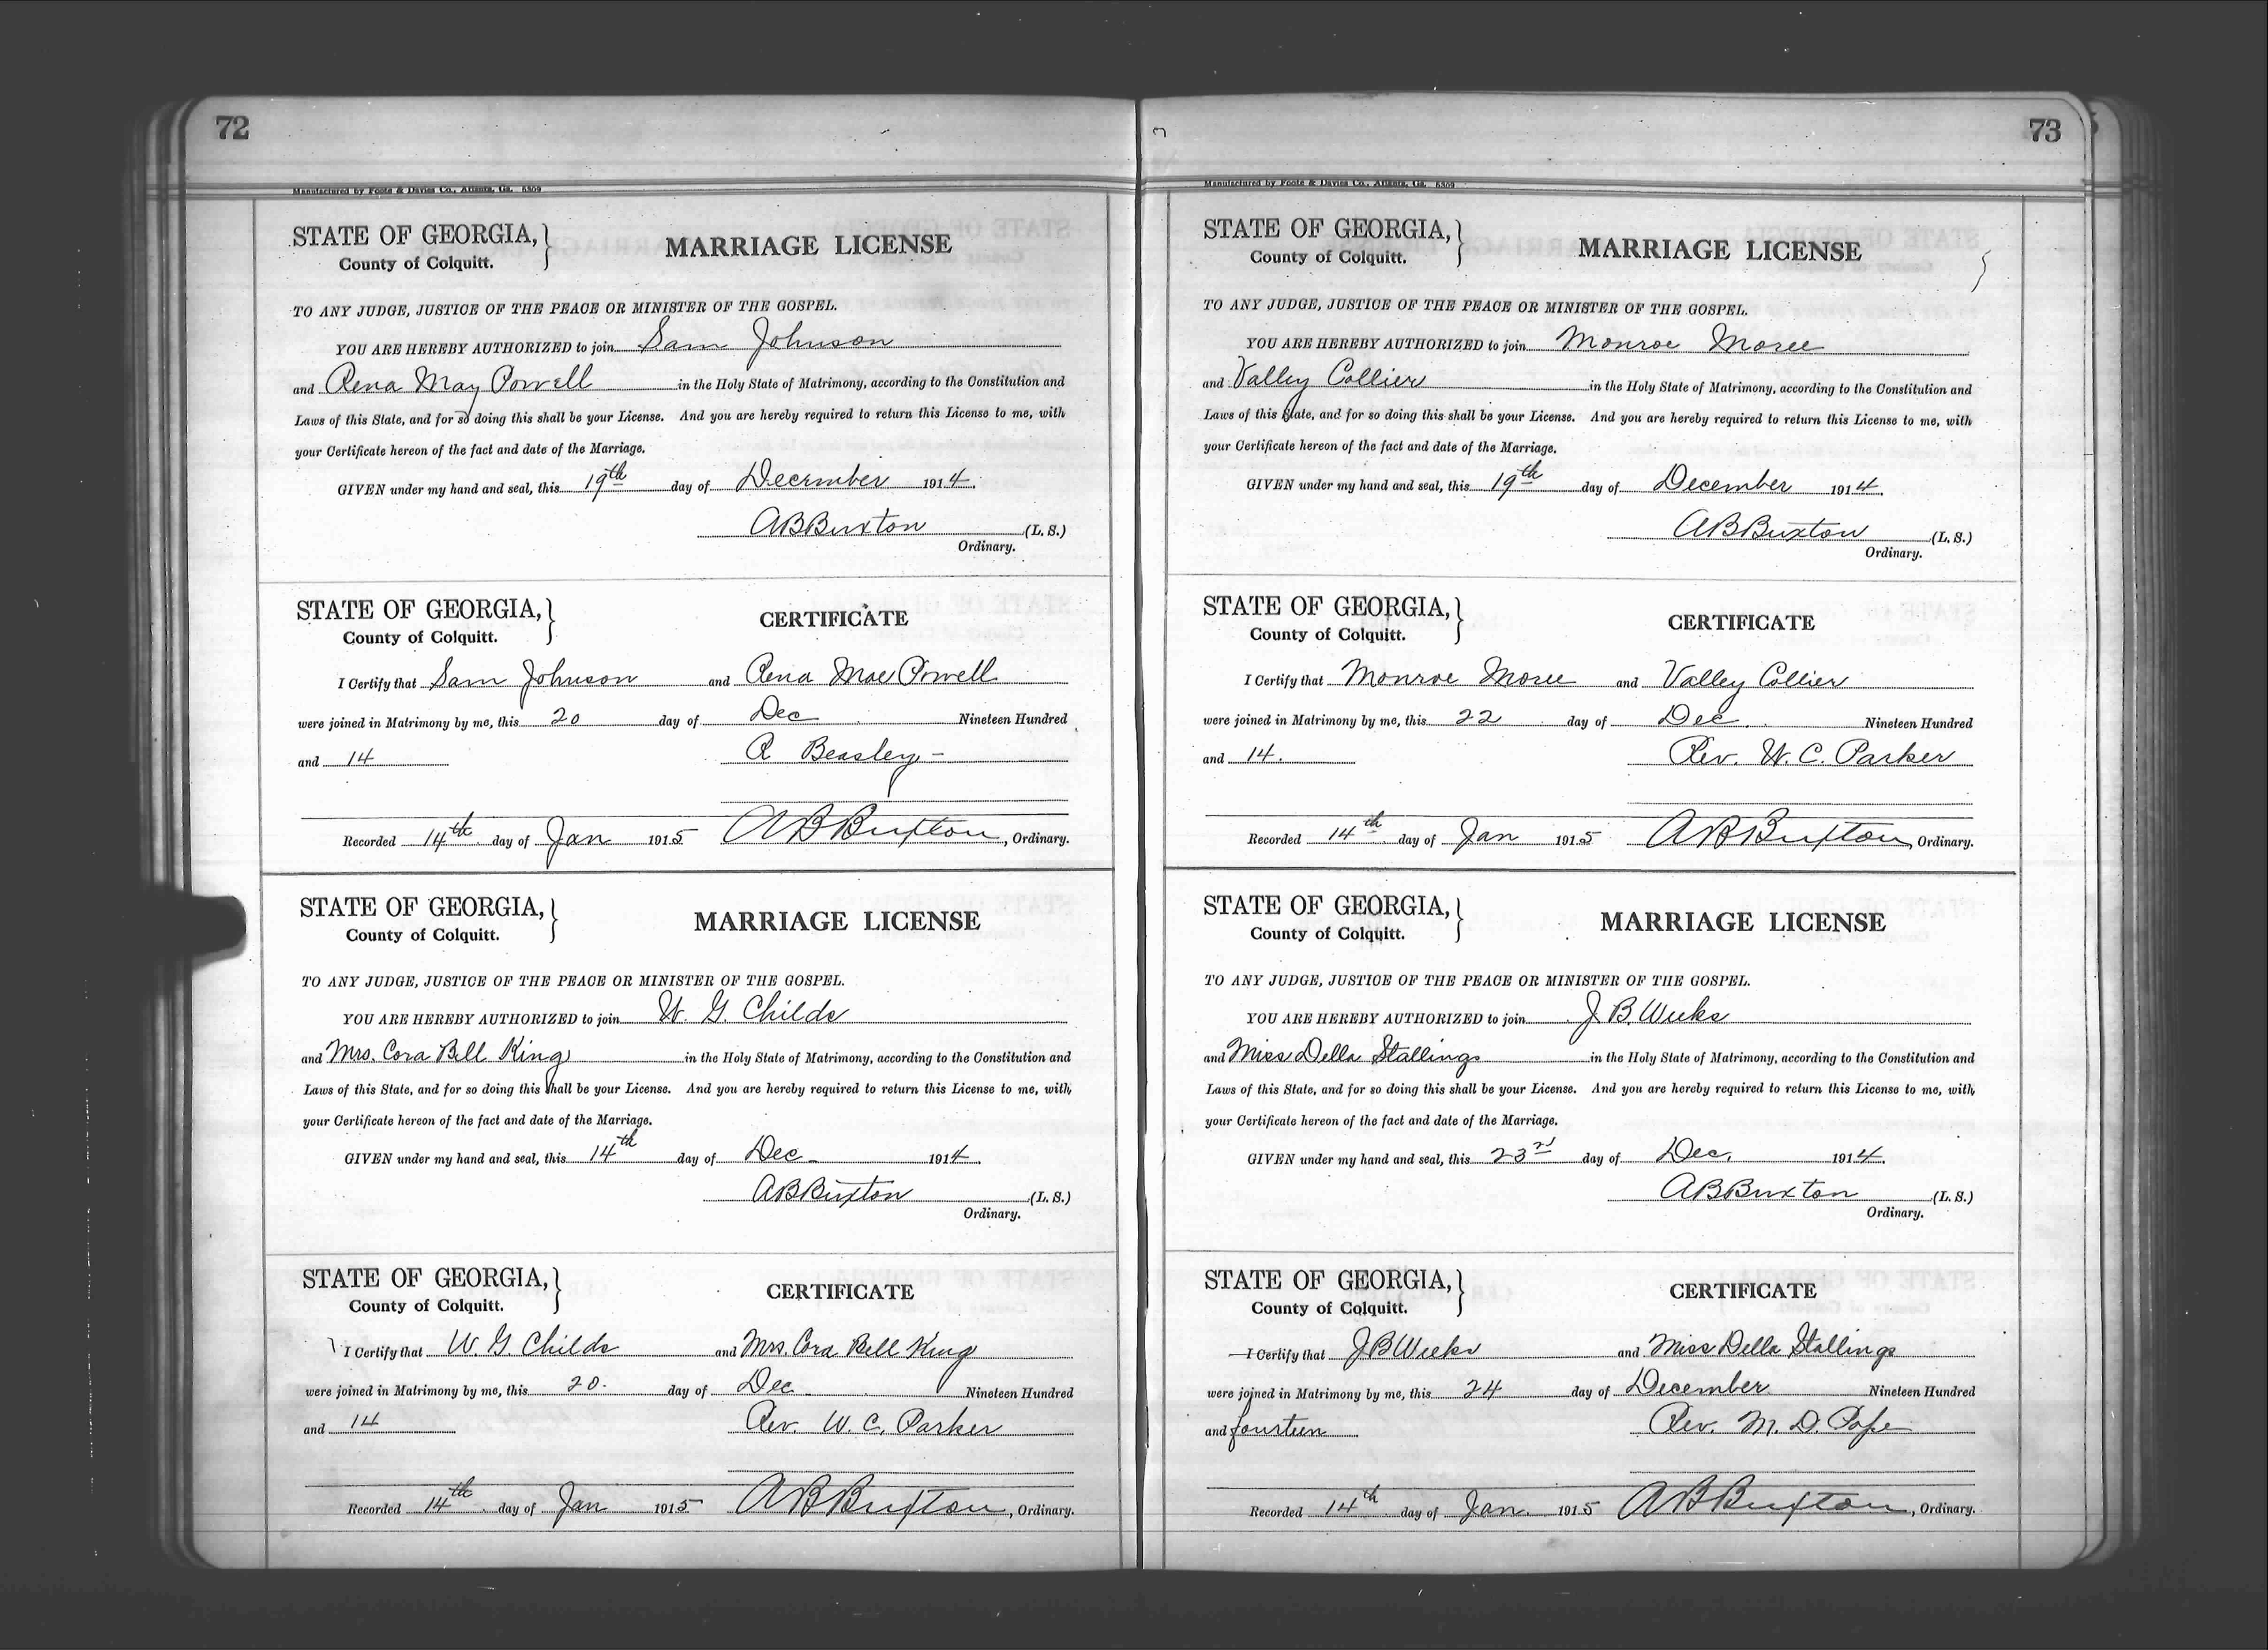 72
Manufactured by Foote & Davies Co., Atlanta, Ga. 5309
STATE OF GEORGIA,
County of Colquitt.
MARRIAGE LICENSE
TO ANY JUDGE, JUSTICE OF THE PEACE OR MINISTER OF THE GOSPEL.
YOU ARE HEREBY AUTHORIZED to join Sam Johnson
and Rena May Powell in the Holy State of Matrimony, according to the Constitution and
Laws of this State, and for so doing this shall be your License. And you are hereby required to return this License to me, with
your Certificate hereon of the fact and date of the Marriage.
GIVEN under my hand and seal, this 19th day of December 1914.
A B Buxton (L. S.)
Ordinary.
STATE OF GEORGIA,
County of Colquitt.
CERTIFICATE
I Certify that Sam Johnson and Rena Mae Powell
were joined in Matrimony by me, this 20 day of Dec Nineteen Hundred
and 14 R Beasley -
Recorded 14th day of Jan 1915 A B Buxton, Ordinary.
STATE OF GEORGIA,
County of Colquitt.
MARRIAGE LICENSE
TO ANY JUDGE, JUSTICE OF THE PEACE OR MINISTER OF THE GOSPEL.
YOU ARE HEREBY AUTHORIZED to join W. G. Childs
and Mrs. Cora Bell King in the Holy State of Matrimony, according to the Constitution and
Laws of this State, and for so doing this shall be your License. And you are hereby required to return this License to me, with
your Certificate hereon of the fact and date of the Marriage.
GIVEN under my hand and seal, this 14th day of Dec 1914.
A B Buxton (L. S.)
Ordinary.
STATE OF GEORGIA,
County of Colquitt.
CERTIFICATE
I Certify that W. G. Childs and Mrs. Cora Bell King
were joined in Matrimony by me, this 20. day of Dec Nineteen Hundred
and 14 Rev. W. C. Parker
Recorded 14th day of Jan 1915 A B Buxton, Ordinary.
73
Manufactured by Foote & Davies Co., Atlanta, Ga. 5309
STATE OF GEORGIA,
County of Colquitt.
MARRIAGE LICENSE
TO ANY JUDGE, JUSTICE OF THE PEACE OR MINISTER OF THE GOSPEL.
YOU ARE HEREBY AUTHORIZED to join Monroe Moree
and Valley Collier in the Holy State of Matrimony, according to the Constitution and
Laws of this State, and for so doing this shall be your License. And you are hereby required to return this License to me, with
your Certificate hereon of the fact and date of the Marriage.
GIVEN under my hand and seal, this 19th day of December 1914.
A B Buxton (L. S.)
Ordinary.
STATE OF GEORGIA,
County of Colquitt.
CERTIFICATE
I Certify that Monroe Moree and Valley Collier
were joined in Matrimony by me, this 22 day of Dec Nineteen Hundred
and 14. Rev. W. C. Parker
Recorded 14th day of Jan 1915 A B Buxton, Ordinary.
STATE OF GEORGIA,
County of Colquitt.
MARRIAGE LICENSE
TO ANY JUDGE, JUSTICE OF THE PEACE OR MINISTER OF THE GOSPEL.
YOU ARE HEREBY AUTHORIZED to join J. B. Weeks
and Miss Della Stallings in the Holy State of Matrimony, according to the Constitution and
Laws of this State, and for so doing this shall be your License. And you are hereby required to return this License to me, with
your Certificate hereon of the fact and date of the Marriage.
GIVEN under my hand and seal, this 23rd day of Dec. 1914.
A B Buxton (L. S.)
Ordinary.
STATE OF GEORGIA,
County of Colquitt.
CERTIFICATE
I Certify that J B Weeks and Miss Della Stallings
were joined in Matrimony by me, this 24 day of December Nineteen Hundred
and fourteen Rev. M. D. Pope
Recorded 14th day of Jan. 1915 A B Buxton, Ordinary.